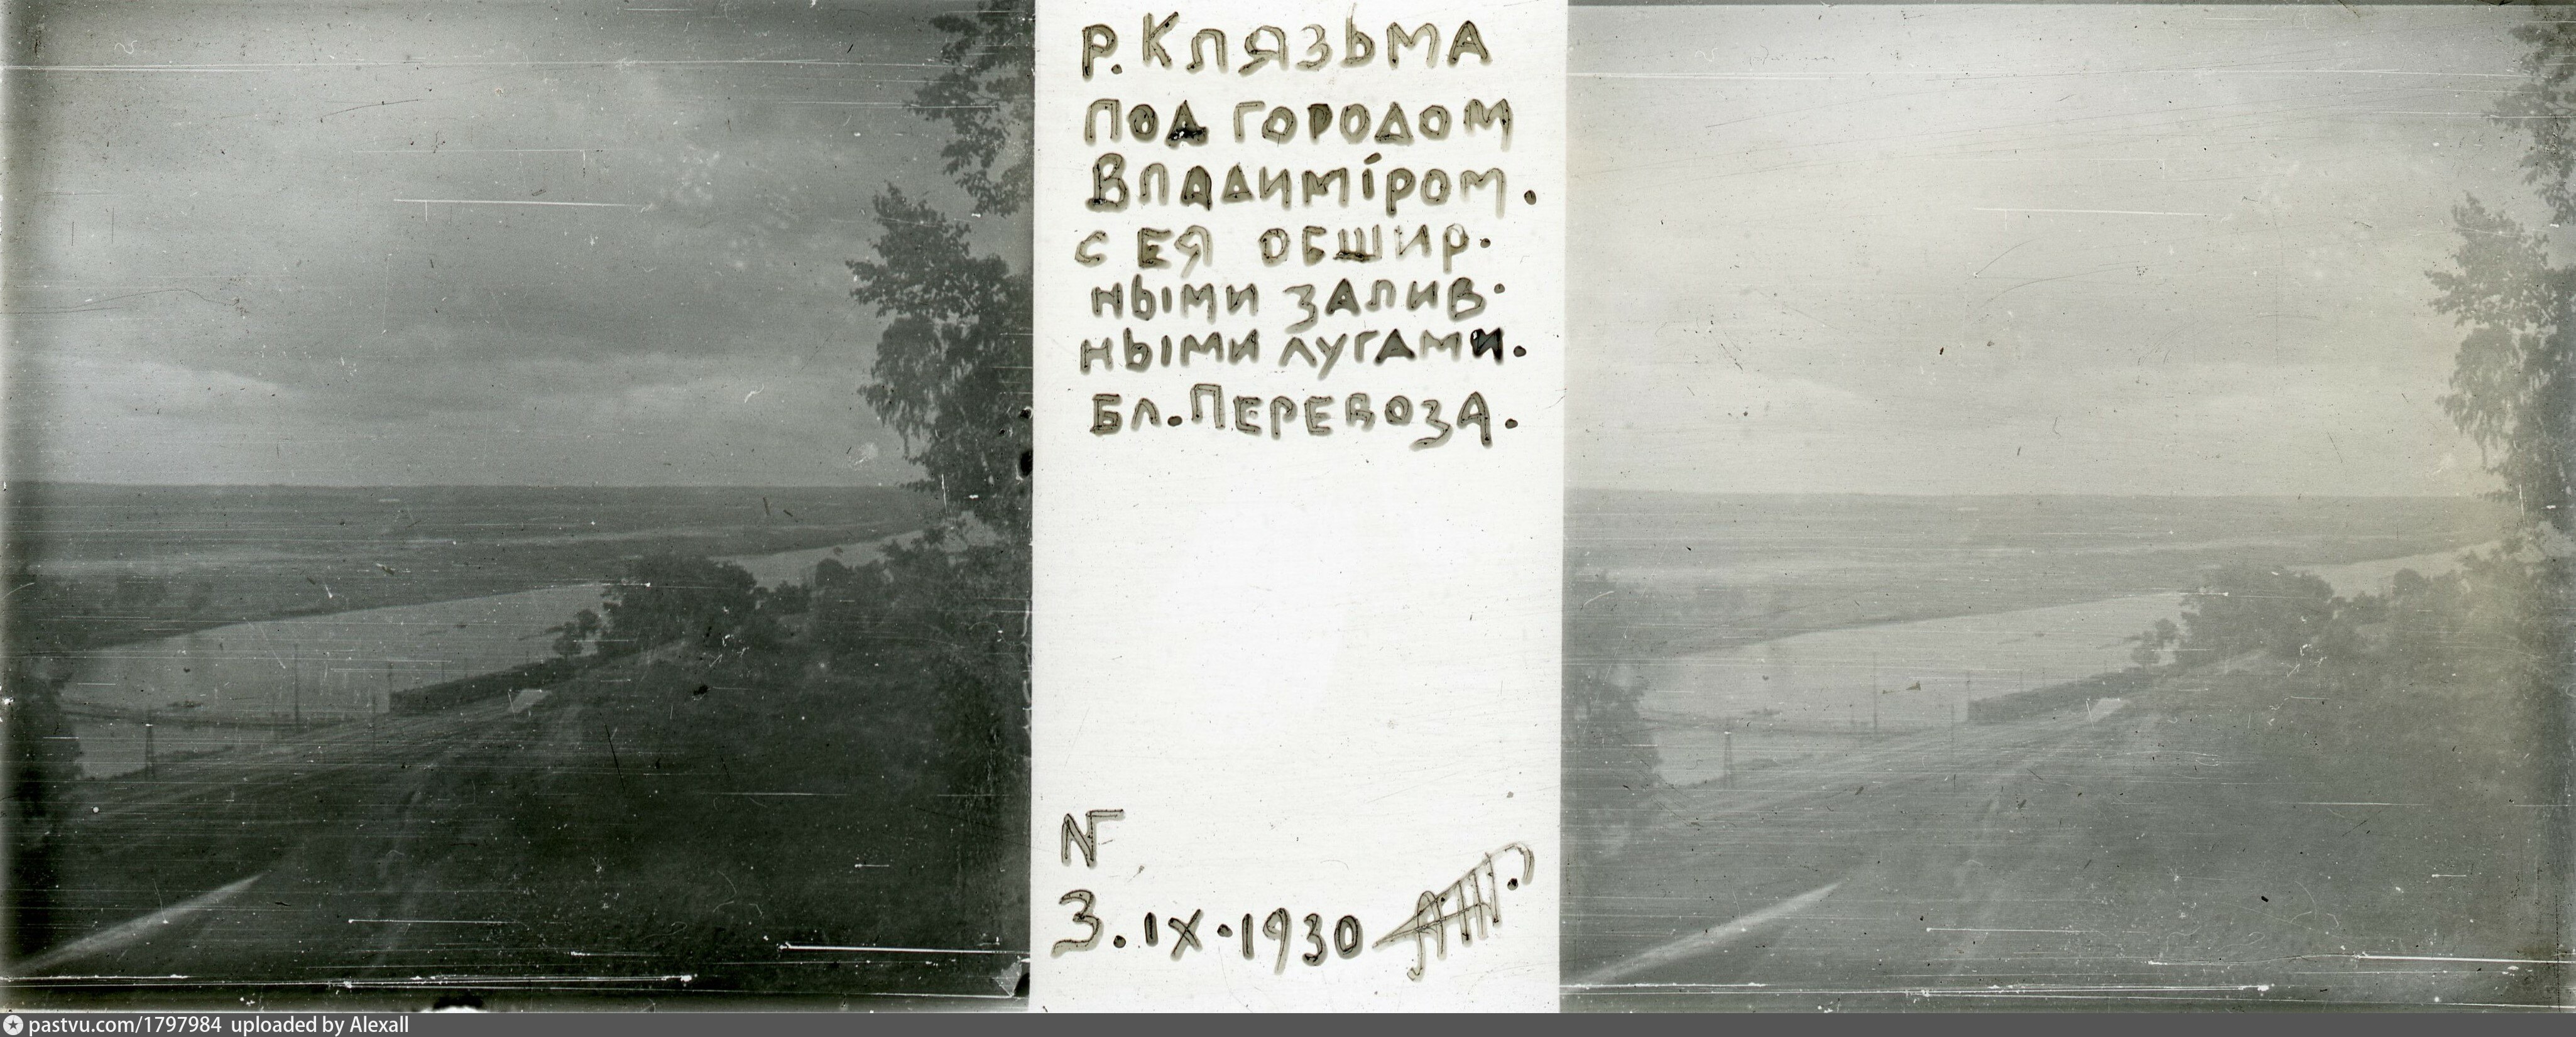 р. Клязьма
под городом
Владимiром.
с ея обшир-
ными залив-
ными лугами.
Бл. Перевоза.
N
3.IX.1930
pastvu.com/1797984 uploaded by Alexall